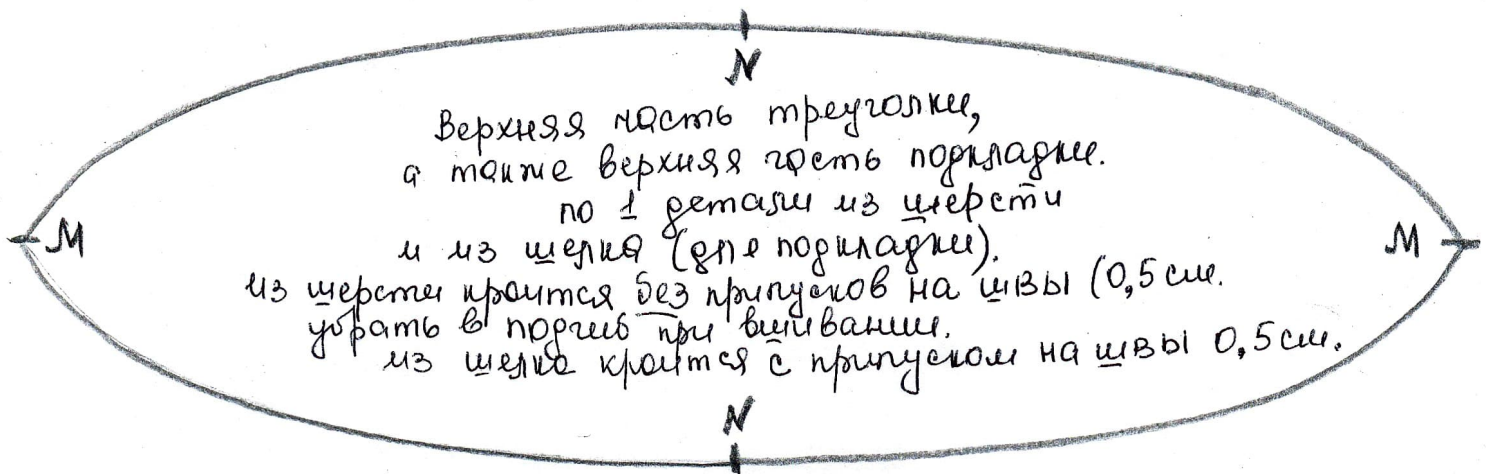 N
Верхняя часть треуголки,
а также верхняя часть подкладки.
по 1 детали из шерсти
M
M
и из шелка (для подкладки).
из шерсти кроится без припусков на швы (0,5 см.
убрать в подгиб при вшивании.
из шелка кроится с припуском на швы 0,5 см.
N